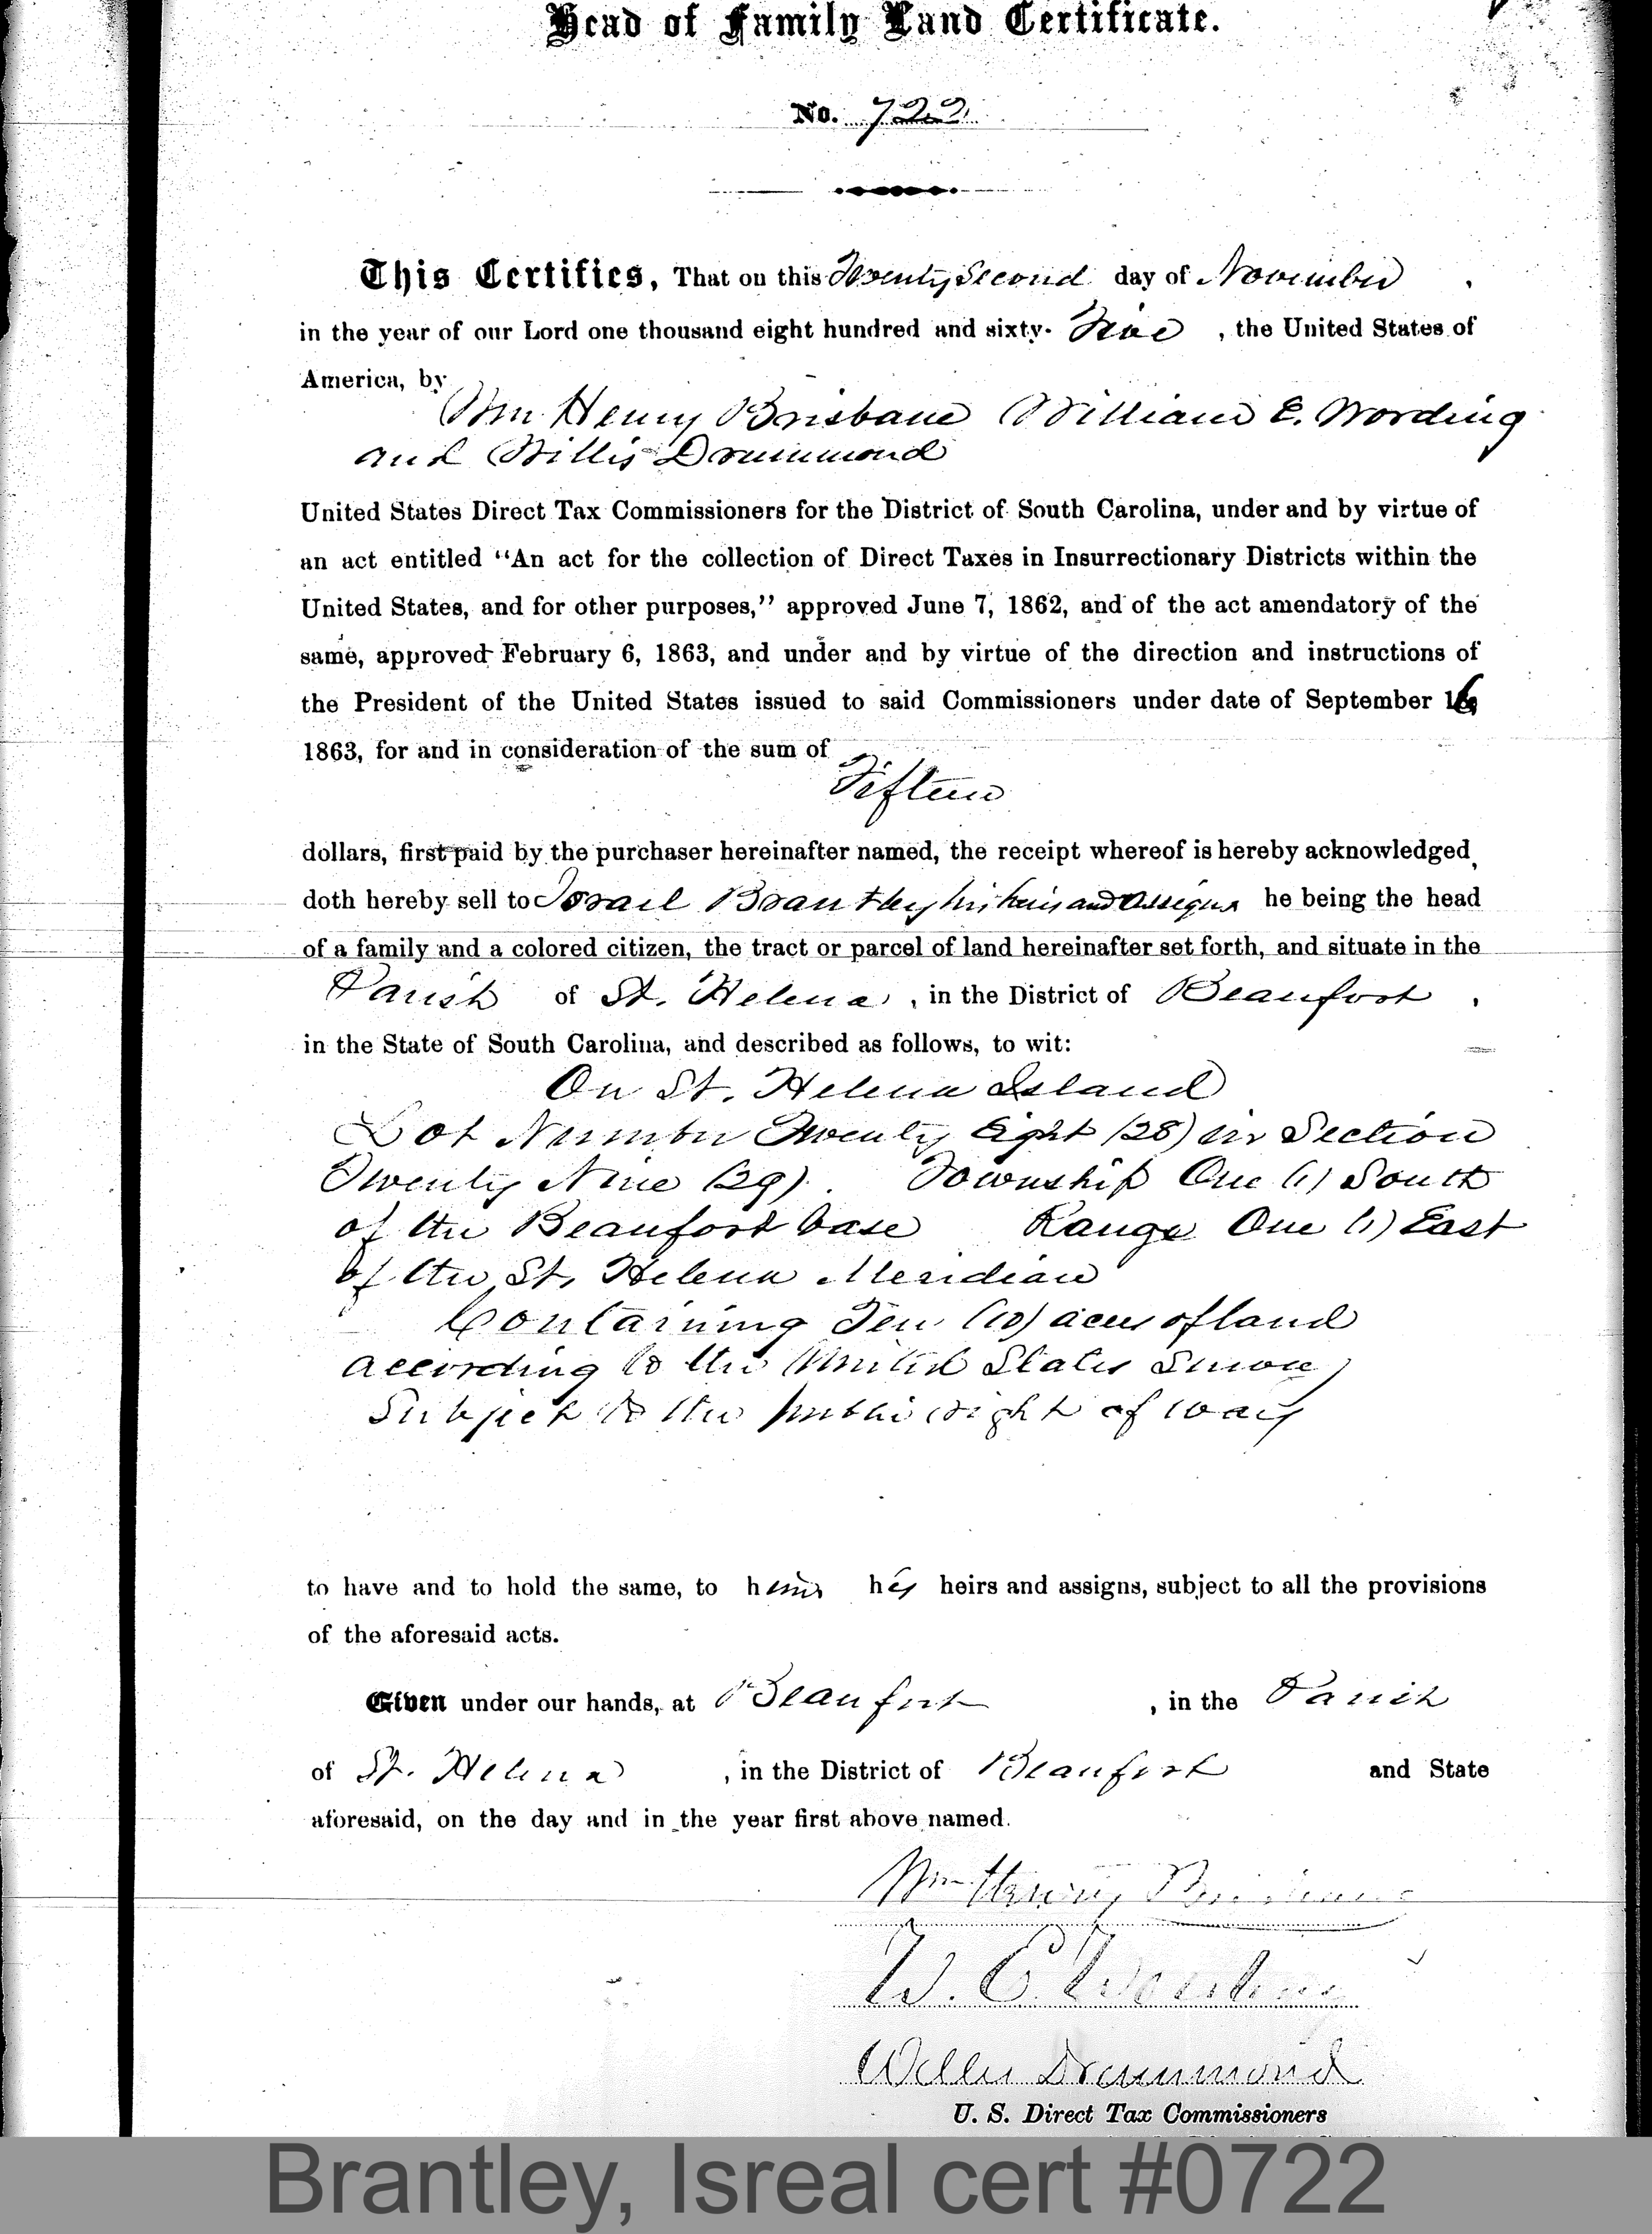 Head of Family Land Certificate.
No. 722
This Certifies, That on this Twenty Second day of November
in the year of our Lord one thousand eight hundred and sixty- Five , the United States of
America, by
Wm Henry Brisbane William E. Wording
and Willis Drummond
United States Direct Tax Commissioners for the District of South Carolina, under and by virtue of
an act entitled "An act for the collection of Direct Taxes in Insurrectionary Districts within the
United States, and for other purposes," approved June 7, 1862, and of the act amendatory of the
same, approved February 6, 1863, and under and by virtue of the direction and instructions of
the President of the United States issued to said Commissioners under date of September 16
1863, for and in consideration of the sum of
Fifteen
dollars, first paid by the purchaser hereinafter named, the receipt whereof is hereby acknowledged,
doth hereby sell to Israel Brantley his heirs and assigns he being the head
of a family and a colored citizen, the tract or parcel of land hereinafter set forth, and situate in the
Parish of St. Helena , in the District of Beaufort ,
in the State of South Carolina, and described as follows, to wit:
On St. Helena Island
Lot Number Twenty Eight (28) in Section
Twenty Nine (29). Township One (1) South
of the Beaufort base Range One (1) East
of the St. Helena Meridian
Containing Ten (10) acres of land
according to the United States Survey
Subject to the public right of way
to have and to hold the same, to him his heirs and assigns, subject to all the provisions
of the aforesaid acts.
Given under our hands, at Beaufort , in the Parish
of St. Helena , in the District of Beaufort and State
aforesaid, on the day and in the year first above named.
Wm Henry Brisbane
W. E. Wording
Willis Drummond
U. S. Direct Tax Commissioners
Brantley, Isreal cert #0722